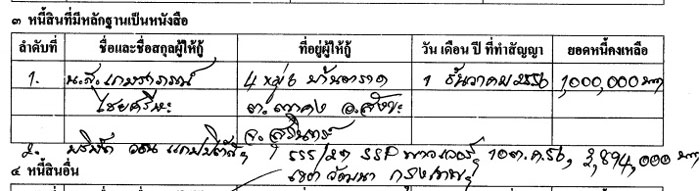 ๓ หนี้สินที่มีหลักฐานเป็นหนังสือ
ลำดับที่ ชื่อและชื่อสกุลผู้ให้กู้ ที่อยู่ผู้ให้กู้ วัน เดือน ปี ที่ทำสัญญา ยอดหนี้คงเหลือ
1. น.ส. 4 หมู่ 6 บ้าน 1 ธันวาคม 2556 1,000,000 บาท
ไชยศรีหะ ต. อ.สังขะ
จ.สุรินทร์
2. บริษัท 555/29 SSP 10 ต.ค.56, 2,894,000 บาท
วัฒนา กรุงเทพฯ
๔ หนี้สินอื่น